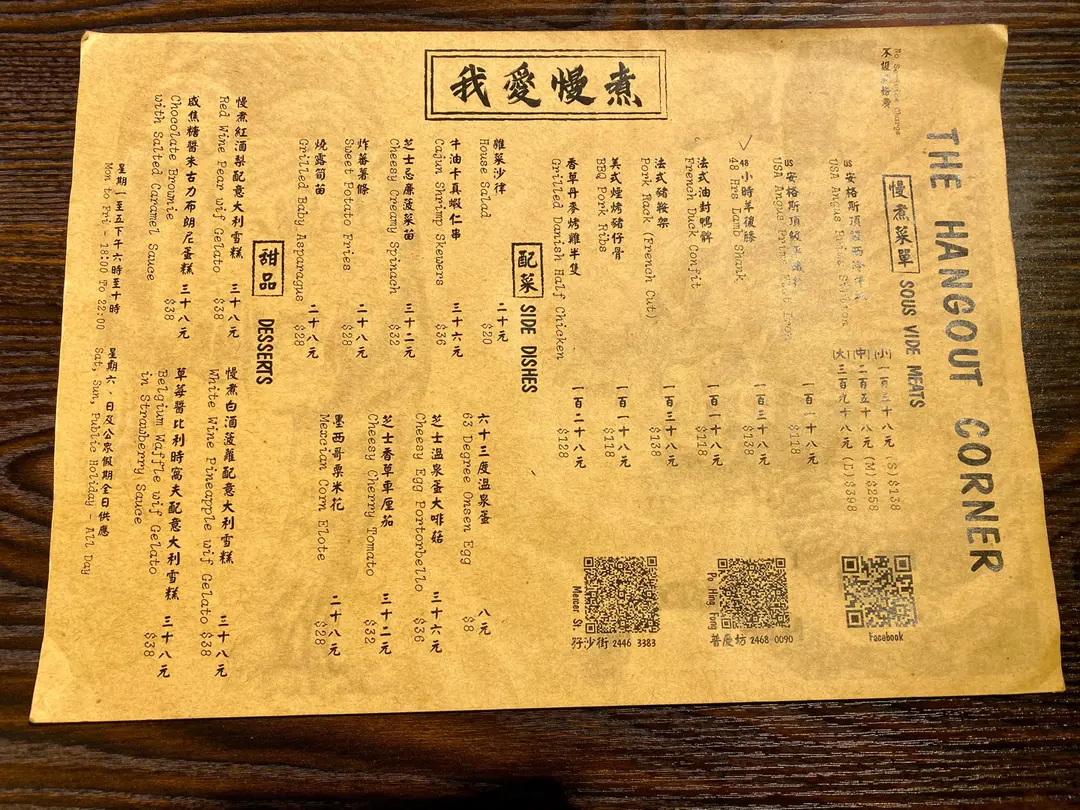 THE HANGOUT CORNER
No Service Charge
我愛慢煮
慢煮菜單 SOUS VIDE MEATS
(小) 一百三十八元 (S) $138
(中) 二百五十八元 (M) $258
(大) 三百九十八元 (L) $398
US 安格斯頂級
USA Angus Prime
US 安格斯頂級
USA Angus Prime
一百一十八元
$118
48小時羊後膝
48 Hrs Lamb Shank
一百三十八元
$138
法式油封鴨髀
French Duck Confit
一百一十八元
$118
法式豬鞍架
Pork Rack (French Cut)
一百三十八元
$138
美式煙烤豬仔骨
BBQ Pork Ribs
一百一十八元
$118
香草丹麥烤雞半隻
Grilled Danish Half Chicken
一百二十八元
$128
Facebook
Po Hing Fong
普慶坊 2468 0090
Mercer St.
孖沙街 2446 3383
配菜 SIDE DISHES
雜菜沙律 二十元
House Salad $20
牛油卡真蝦仁串 三十六元
Cajun Shrimp Skewers $36
芝士忌廉菠菜苗 三十二元
Cheesy Creamy Spinach $32
炸蕃薯條 二十八元
Sweet Potato Fries $28
燒露筍苗 二十八元
Grilled Baby Asparagus $28
六十三度溫泉蛋 八元
63 Degree Onsen Egg $8
芝士溫泉蛋大啡菇 三十六元
Cheesy Egg Portorbello $36
芝士香草車厘茄 三十二元
Cheesy Cherry Tomato $32
墨西哥粟米花 二十八元
Mexcian Corn Elote $28
甜品 DESSERTS
慢煮紅酒梨配意大利雪糕 三十八元
Red Wine Pear wif Gelato $38
咸焦糖醬朱古力布朗尼蛋糕 三十八元
Chocolate Brownie $38
with Salted Caramel Sauce
慢煮白酒菠蘿配意大利雪糕 三十八元
White Wine Pineapple wif Gelato $38
草莓醬比利時窩夫配意大利雪糕 三十八元
Belgium Waffle wif Gelato $38
in Strawberry Sauce
星期一至五下午六時至十時
Mon to Fri - 18:00 To 22:00
星期六、日及公眾假期全日供應
Sat, Sun, Public Holiday - All Day